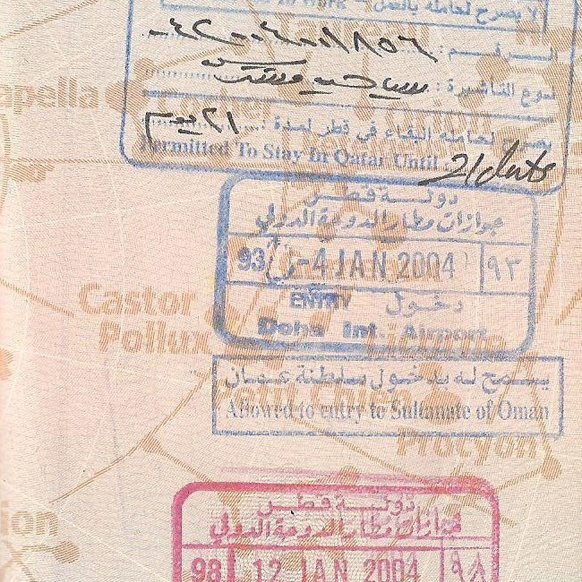 لا يصرح لحامله بالعمل
الرقم : ٠٤٢٠٠٤٠٠١٨٥٦
نوع التأشيرة :
apella
يصرح لحامله البقاء في قطر لمدة : ٢١ يوم
Permitted To Stay In Qatar Until 21 days
دولة قطر
جوازات مطار الدوحة الدولي
93 - 4 JAN 2004 ٩٣
ENTRY دخول
Doha Int. Airport
Castor
Pollux
يسمح له بدخول سلطنة عمان
Allowed to entry to Sultanate of Oman
Procyon
دولة قطر
جوازات مطار الدوحة الدولي
ion
98 12 JAN 2004 ٩٨